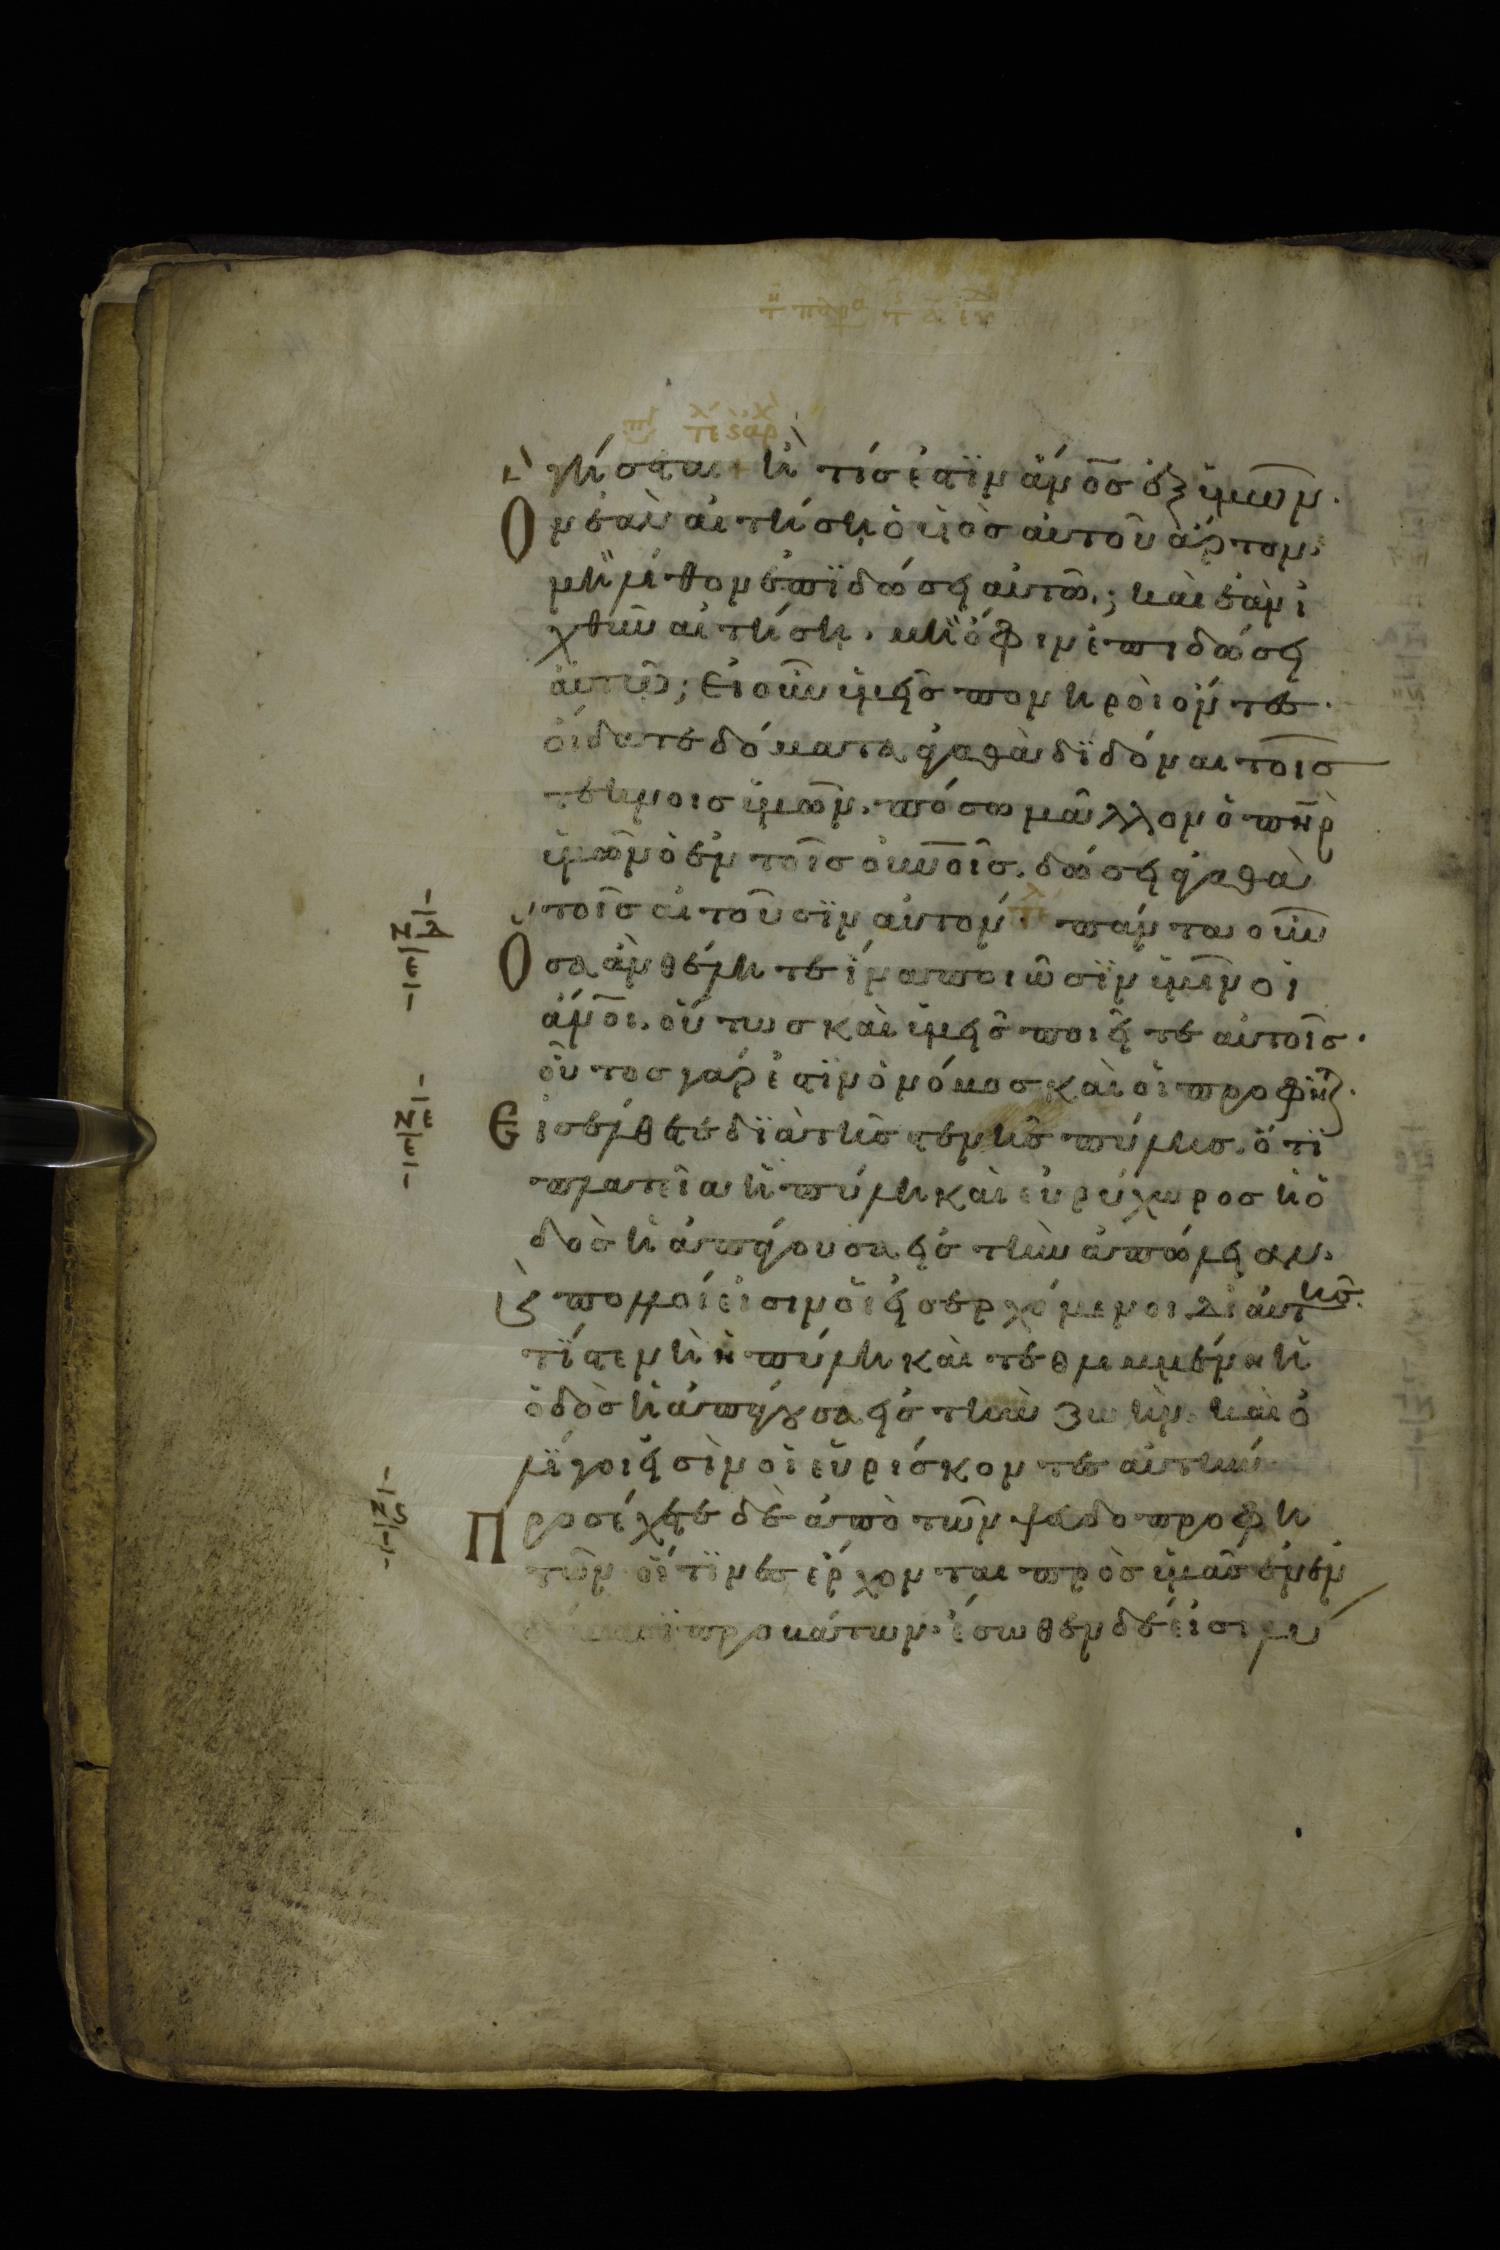 γήσεται + ἢ τίς ἐστϊν ἄνο̅σ ἐξ ὑμῶν·
Ὃν ἐὰν αἰτήσῃ ὁ υἱὸσ αὐτοῦ ἄρτον·
μὴ λίθον ἐπϊδώσει αὐτῶ; καὶ ἐὰν ἰ
χθὺν αἰτήσῃ. μὴ ὄφιν ἐπιδώσει
αὐτῶ; Εἰ οὖν ὑμεῖσ πονηροὶ ὄντεσ·
οἴδατε δόματα ἀγαθὰ δϊδόναι τοῖσ
τέκνοισ ὑμῶν. πόσω μᾶλλον ὁ πη̅ρ
ὑμῶν ὁ ἐν τοῖσ οὐνο̅ῖσ. δώσει ἀγαθὰ
τοῖσ αἰτοῦσϊν αὐτόν· πάντα οὖν
ΝΔ
Ε
Ὅσα ἂν θέλητε ἵνα ποιῶσϊν ὑμῖν οἱ
ἄνο̅ι. οὕτωσ καὶ ὑμεῖσ ποιεῖτε αὐτοῖσ·
οὗτοσ γάρ ἐστϊν ὁ νόμοσ καὶ οἱ προφῆτ·
ΝΕ
Ε
Εἰσέλθετε δϊὰ τῆσ στενῆσ πύλησ. ὅτϊ
πλατεῖα ἡ πύλη καὶ εὐρύχωροσ ἡ ὁ
δὸσ ἡ ἀπάγουσα εἰσ τὴν ἀπώλειαν.
ϗ πολλοί εἰσιν οἱ εἰσερχόμενοι δι αὐτῆσ.
τί στενὴ ἡ πύλη καὶ τεθλιμμένη ἡ
ὁδὸσ ἡ ἀπάγουσα εἰσ τὴν ζωήν. καὶ ὀ
λΐγοι εἰσὶν οἱ εὑρίσκοντεσ αὐτήν·
Προσέχετε δὲ ἀπὸ τῶν ψευδοπροφη
τῶν οἵτϊνεσ ἔρχονται πρὸσ ὑμᾶσ ἐν ἐν
προβάτων· ἔσωθεν δέ εἰσι λύ